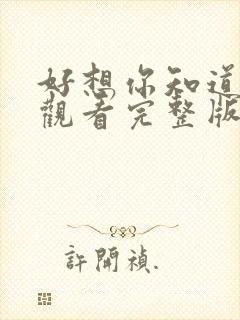 好想你知道
觀看完整版
許開禎.